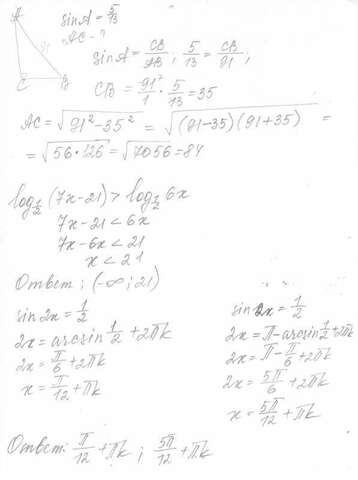 A
sin A = 5/13
AC - ?
91
C B
sin A = CB/AB ; 5/13 = CB/91 ;
CB = 91/1 · 5/13 = 35
AC = √(91² - 35²) = √((91-35)(91+35)) =
= √(56·126) = √7056 = 84
log_{1/2} (7x - 21) > log_{1/2} 6x
7x - 21 < 6x
7x - 6x < 21
x < 21
Ответ: (-∞; 21)
sin 2x = 1/2
2x = arcsin 1/2 + 2πk
2x = π/6 + 2πk
x = π/12 + πk
sin 2x = 1/2
2x = π - arcsin 1/2 + 2πk
2x = π - π/6 + 2πk
2x = 5π/6 + 2πk
x = 5π/12 + πk
Ответ: π/12 + πk ; 5π/12 + πk